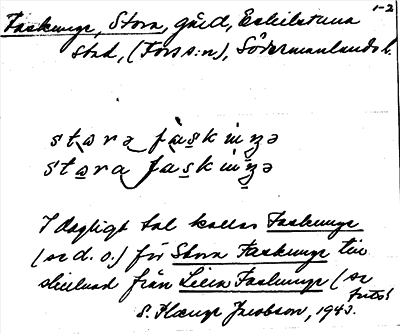 1-2
Faskunge, Stora, gård, Eskilstuna
stad, (Fors s:n), Södermanlands l.
stɷra fàskiŋə
stɷra faskiŋə
I dagligt tal kallas Faskunge
(se d. o.) för Stora Faskunge till
skillnad från Lilla Faskunge (se
forts!
S. Hænge Jacobson, 1943.